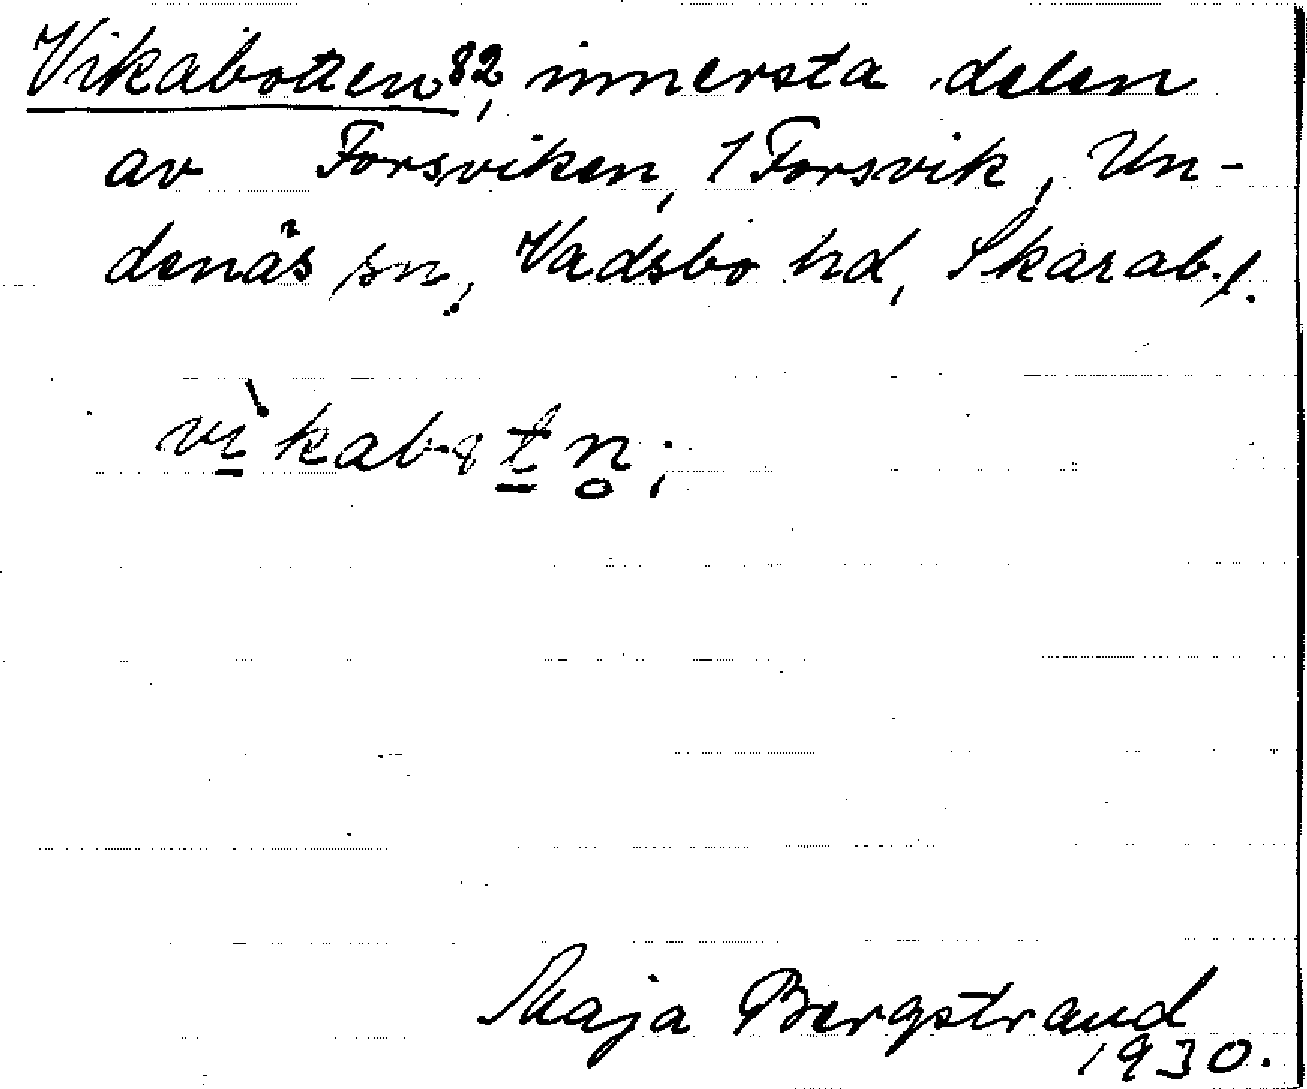 Vikabotten⁸², innersta delen
av Forsviken, 1 Forsvik, Un-
denäs sn, Vadsbo hd, Skarab. l.
Maja Bergstrand
1930.